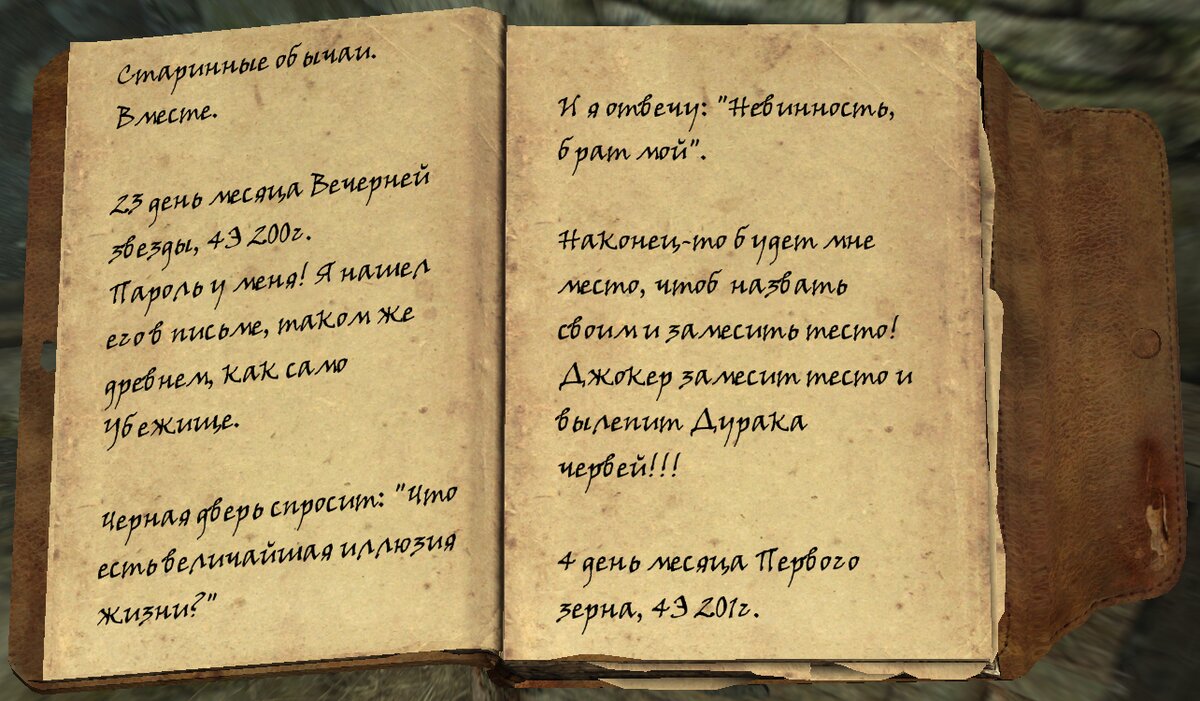 Старинные обычаи.
Вместе.
23 день месяца Вечерней
звезды, 4Э 200г.
Пароль у меня! Я нашел
его в письме, таком же
древнем, как само
Убежище.
Черная дверь спросит: "Что
есть величайшая иллюзия
жизни?"
И я отвечу: "Невинность,
брат мой".
Наконец-то будет мне
место, чтоб назвать
своим и замесить тесто!
Джокер замесит тесто и
вылепит Дурака
червей!!!
4 день месяца Первого
зерна, 4Э 201г.